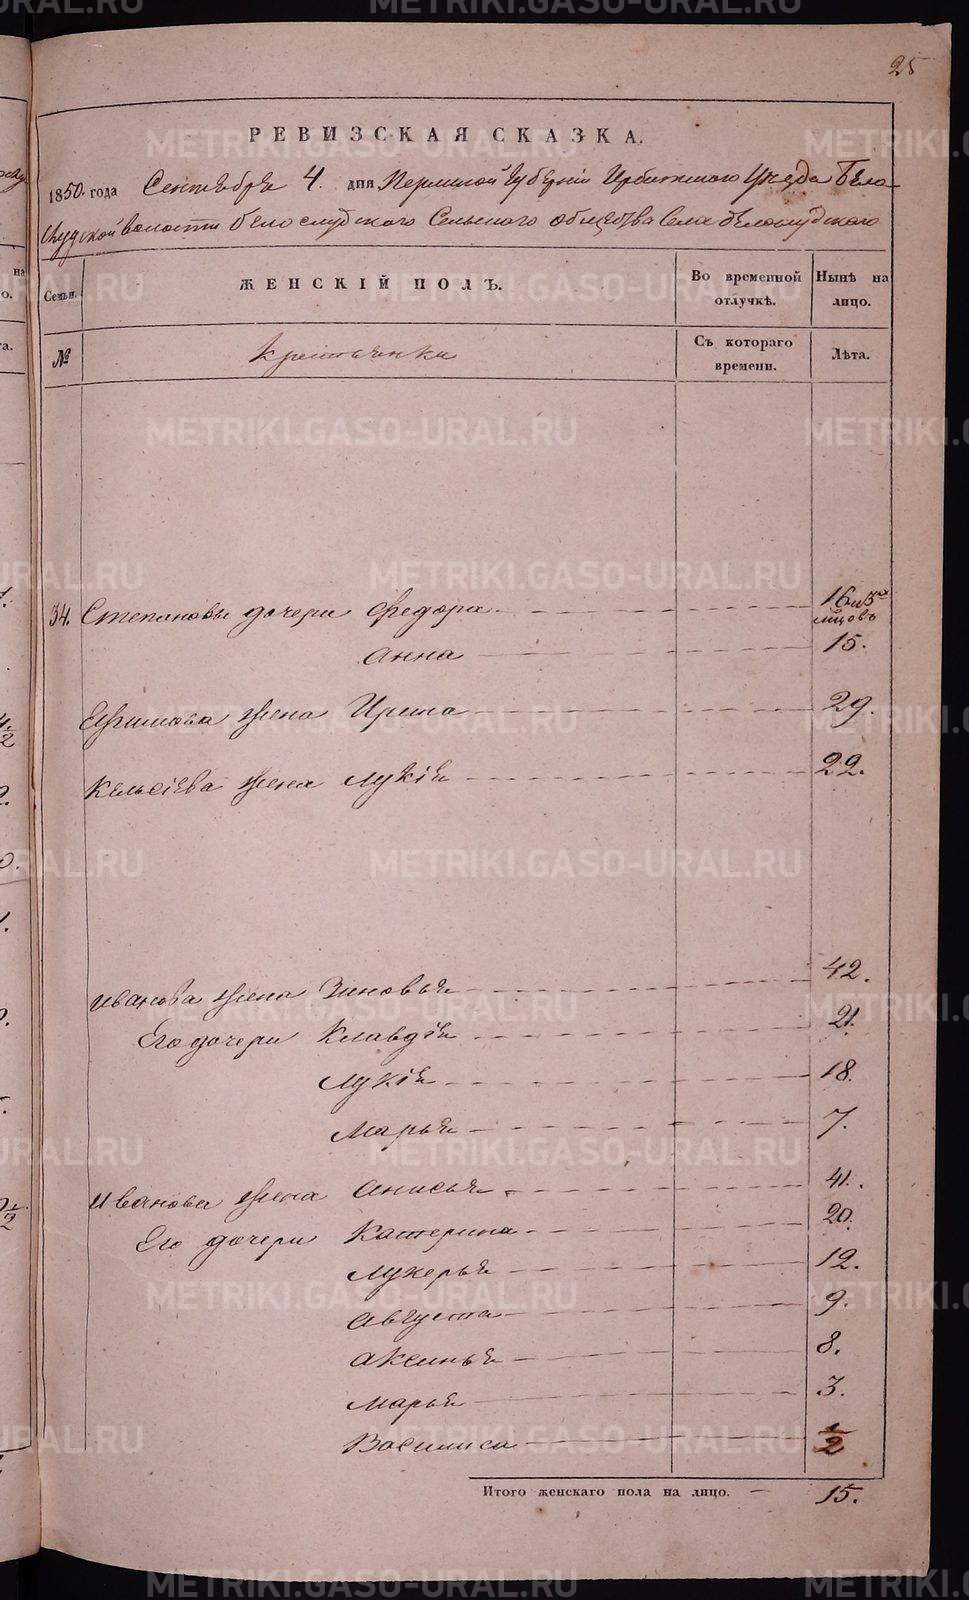 25
РЕВИЗСКАЯ СКАЗКА.
1850. года Сентября 4. дня Пермской Губерніи Ирбитскаго Уѣзда Бѣло-
слудской волости Бѣлослудского Сельского общества села Бѣлослудского
Семьи. ЖЕНСКІЙ ПОЛЪ. Во временной отлучкѣ. Нынѣ на лицо.
№ Крестьянки Съ котораго времени. Лѣта.
34. Степановы дочери Федора 16
Анна 15.
Ефимова жена Ирина 29.
Кельсіева жена Лукія 22.
Иванова жена Зиновья 42.
Его дочери Клавдія 21.
Лукія 18.
Марья 7.
Иванова жена Анисья 41.
Его дочери Катерина 20.
Лукерья 12.
Августа 9.
Аксинья 8.
Марья 3.
Василиса 1/2
Итого женскаго пола на лицо. — 15.
METRIKI.GASO-URAL.RU